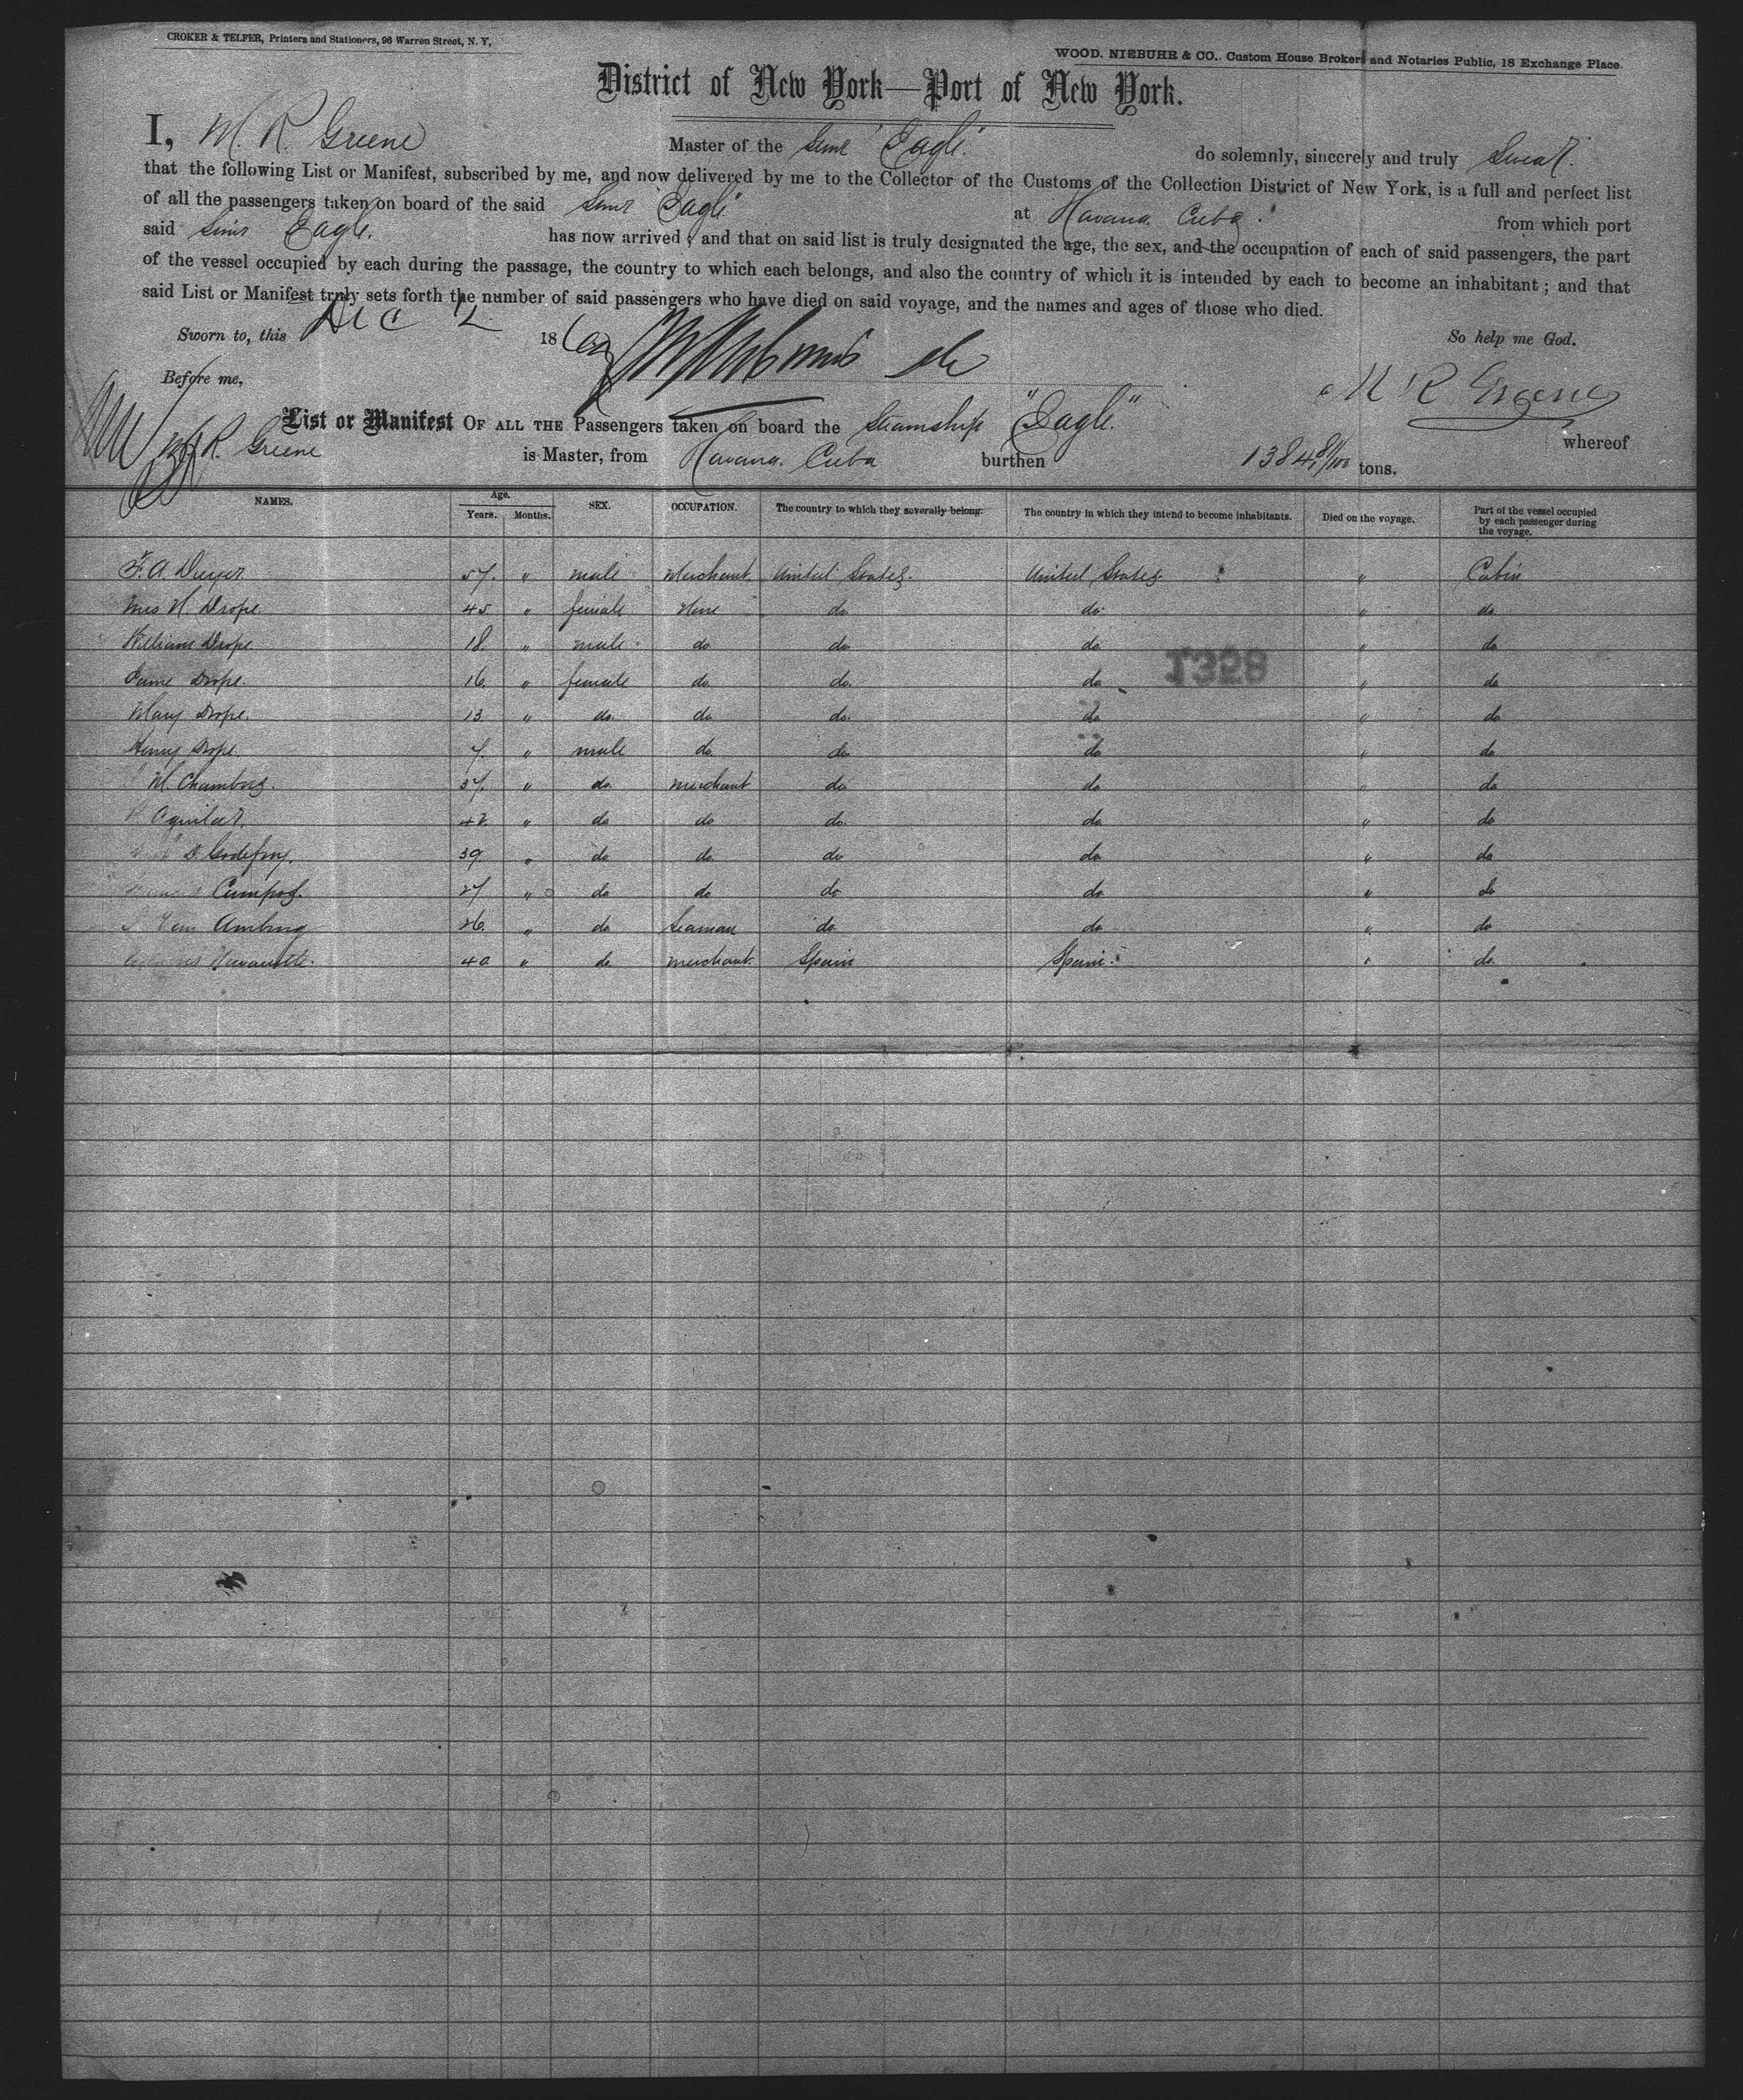 CROKER & TELFER, Printers and Stationers, 96 Warren Street, N. Y,
WOOD, NIEBUHR & CO., Custom House Brokers and Notaries Public, 18 Exchange Place.
District of New York—Port of New York.
I, M. R. Greene Master of the Smr "Eagle" do solemnly, sincerely and truly swear
that the following List or Manifest, subscribed by me, and now delivered by me to the Collector of the Customs of the Collection District of New York, is a full and perfect list
of all the passengers taken on board of the said Smr Eagle at Havana. Cuba. from which port
said Smr Eagle. has now arrived; and that on said list is truly designated the age, the sex, and the occupation of each of said passengers, the part
of the vessel occupied by each during the passage, the country to which each belongs, and also the country of which it is intended by each to become an inhabitant; and that
said List or Manifest truly sets forth the number of said passengers who have died on said voyage, and the names and ages of those who died.
Sworn to, this Dec 2 186 So help me God.
Before me, M R Greene
List or Manifest OF ALL THE Passengers taken on board the Steamship "Eagle." whereof
M. R. Greene is Master, from Havana. Cuba burthen 1384 81/100 tons.
NAMES. Age. Years. Months. SEX. OCCUPATION. The country to which they severally belong. The country in which they intend to become inhabitants. Died on the voyage. Part of the vessel occupied by each passenger during the voyage.
F. A. 57. " male Merchant United States. United States. " Cabin
Mrs H. Drope 45 " female None do do " do
William Drope 18. " male do do do " do
Drope. 16. " female do do. do " do
1328
Mary Drope. 13 " do. do do. do " do
Henry Drope 7. " male do. do do " do
M. Chambers. 37. " do. merchant do do " do
Aguilar. 42. " do do do. do. " do
D. Godefroy. 39 " do do. do do " do
Campos. 27 " do do do do " do
Van Ambing 26. " do Seaman do. do " do
40 " do merchant. Spain Spain. " do.